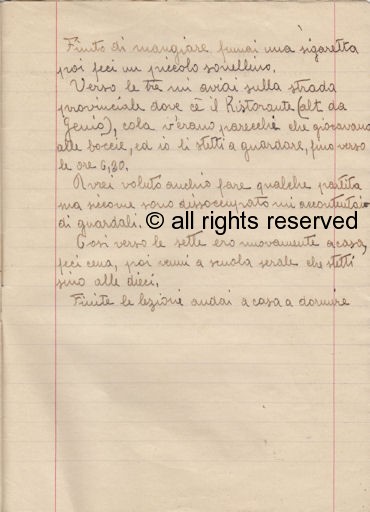 Finito di mangiare fumai una sigaretta
poi feci un piccolo sonellino.
Verso le tre mi aviai sulla strada
provinciale dove c'è il Ristorante (alt da
Genio), cola v'erano parecchi che giocavano
alle boccie, ed io li stetti a guardare, fino verso
le ore 6,30.
Avrei voluto anchio fare qualche partita
ma siccome sono dissocupato mi accontentai
di guardali.
© all rights reserved
Cosi verso le sette ero nuovamente a casa,
feci cena, poi venni a scuola serale che stetti
sino alle dieci.
Finite le lezione andai a casa a dormire